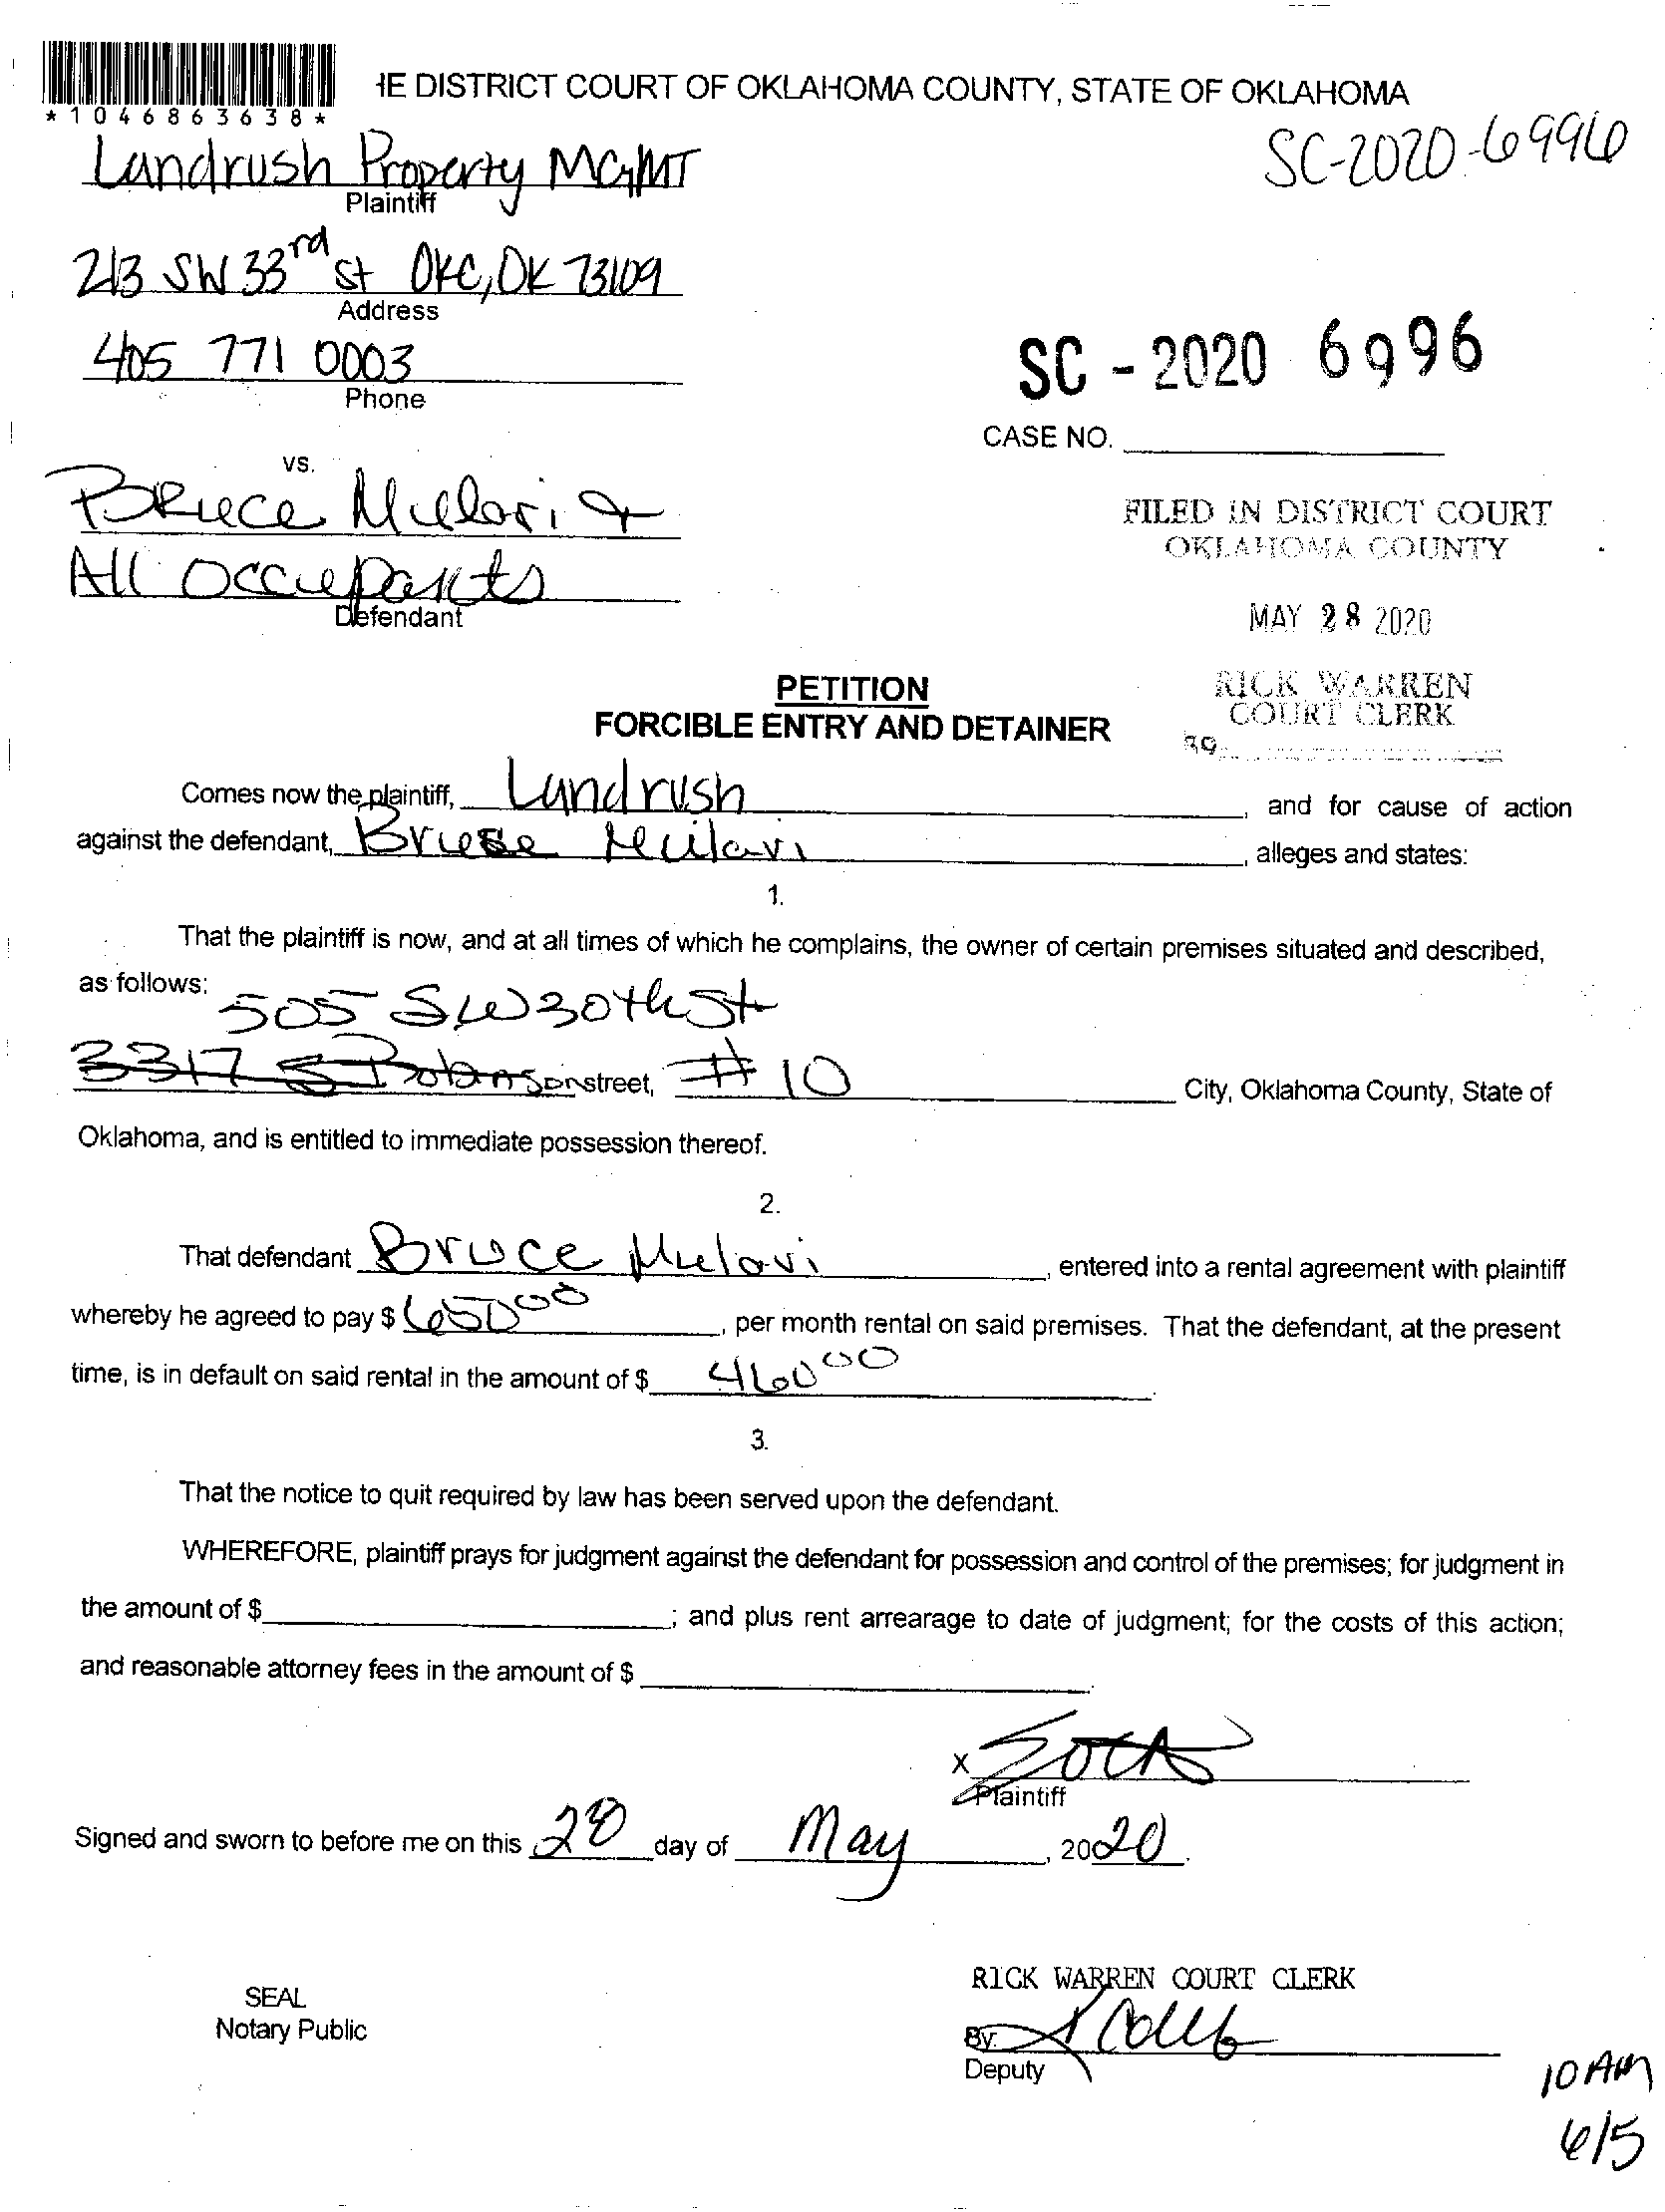 *1046863638*
HE DISTRICT COURT OF OKLAHOMA COUNTY, STATE OF OKLAHOMA
SC-2020-6996
Landrush Property MGMT
Plaintiff
213 SW 33rd St OKC, OK 73109
Address
405 771 0003
Phone
SC - 2020 6996
CASE NO.
vs.
Bruce Mulari &
All Occupants
Defendant
FILED IN DISTRICT COURT
OKLAHOMA COUNTY
MAY 28 2020
RICK WARREN
COURT CLERK
39
PETITION
FORCIBLE ENTRY AND DETAINER
Comes now the plaintiff, Landrush, and for cause of action
against the defendant, Bruce Mulari, alleges and states:
1.
That the plaintiff is now, and at all times of which he complains, the owner of certain premises situated and described,
as follows:
505 SW 30th St
3317 S street, #10 City, Oklahoma County, State of
Oklahoma, and is entitled to immediate possession thereof.
2.
That defendant Bruce Mulari, entered into a rental agreement with plaintiff
whereby he agreed to pay $ 650 00, per month rental on said premises. That the defendant, at the present
time, is in default on said rental in the amount of $ 460 00.
3.
That the notice to quit required by law has been served upon the defendant.
WHEREFORE, plaintiff prays for judgment against the defendant for possession and control of the premises; for judgment in
the amount of $ ; and plus rent arrearage to date of judgment; for the costs of this action;
and reasonable attorney fees in the amount of $ .
X
Plaintiff
Signed and sworn to before me on this 28 day of May, 2020.
SEAL
Notary Public
RICK WARREN COURT CLERK
By:
Deputy
10 AM
6/5